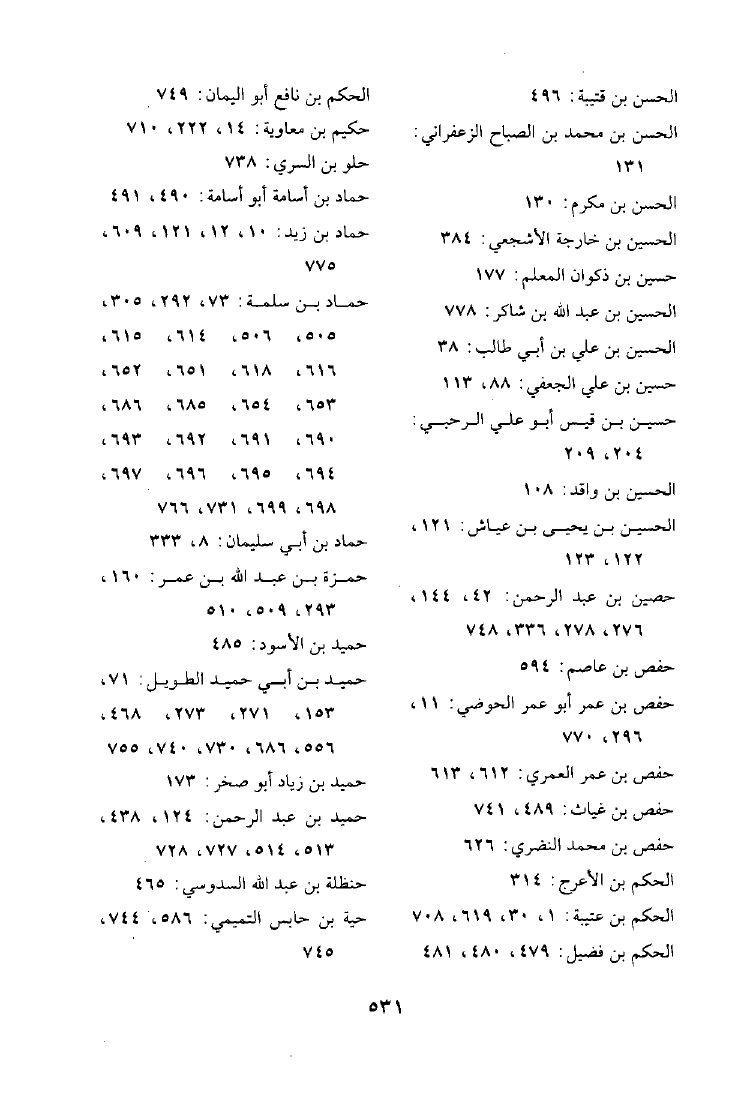 الحسن بن قتيبة: ٤٩٦
الحسن بن محمد بن الصباح الزعفراني:
١٣١
الحسن بن مكرم: ١٣٠
الحسين بن خارجة الأشجعي: ٣٨٤
حسين بن ذكوان المعلم: ١٧٧
الحسين بن عبد الله بن شاكر: ٧٧٨
الحسين بن علي بن أبي طالب: ٣٨
حسين بن علي الجعفي: ٨٨، ١١٣
حسيـن بـن قيـس أبـو علـي الـرحبـي:
٢٠٤، ٢٠٩
الحسين بن واقد: ١٠٨
الحسيـن بـن يحيـى بـن عيـاش: ١٢١،
١٢٢، ١٢٣
حصين بن عبد الرحمن: ٤٢، ١٤٤،
٢٧٦، ٢٧٨، ٣٣٦، ٧٤٨
حفص بن عاصم: ٥٩٤
حفص بن عمر أبو عمر الحوضي: ١١،
٢٩٦، ٧٧٠
حفص بن عمر العمري: ٦١٢، ٦١٣
حفص بن غياث: ٤٨٩، ٧٤١
حفص بن محمد النضري: ٦٢٦
الحكم بن الأعرج: ٣١٤
الحكم بن عتيبة: ١، ٣٠، ٦١٩، ٧٠٨
الحكم بن فضيل: ٤٧٩، ٤٨٠، ٤٨١
الحكم بن نافع أبو اليمان: ٧٤٩
حكيم بن معاوية: ١٤، ٢٢٢، ٧١٠
حلو بن السري: ٧٣٨
حماد بن أسامة أبو أسامة: ٤٩٠، ٤٩١
حماد بن زيد: ١٠، ١٢، ١٢١، ٦٠٩،
٧٧٥
حمـاد بـن سلمـة: ٧٣، ٢٩٢، ٣٠٥،
٥٠٥، ٥٠٦، ٦١٤، ٦١٥،
٦١٦، ٦١٨، ٦٥١، ٦٥٢،
٦٥٣، ٦٥٤، ٦٨٥، ٦٨٦،
٦٩٠، ٦٩١، ٦٩٢، ٦٩٣،
٦٩٤، ٦٩٥، ٦٩٦، ٦٩٧،
٦٩٨، ٦٩٩، ٧٣١، ٧٦٦
حماد بن أبي سليمان: ٨، ٣٣٣
حمـزة بـن عبـد الله بـن عمـر: ١٦٠،
٢٩٣، ٥٠٩، ٥١٠
حميد بن الأسود: ٤٨٥
حميـد بـن أبـي حميـد الطـويـل: ٧١،
١٥٣، ٢٧١، ٢٧٣، ٤٦٨،
٥٥٦، ٦٨٦، ٧٣٠، ٧٤٠، ٧٥٥
حميد بن زياد أبو صخر: ١٧٣
حميد بن عبد الرحمن: ١٢٤، ٤٣٨،
٥١٣، ٥١٤، ٧٢٧، ٧٢٨
حنظلة بن عبد الله السدوسي: ٤٦٥
حية بن حابس التميمي: ٥٨٦، ٧٤٤،
٧٤٥
٥٣١